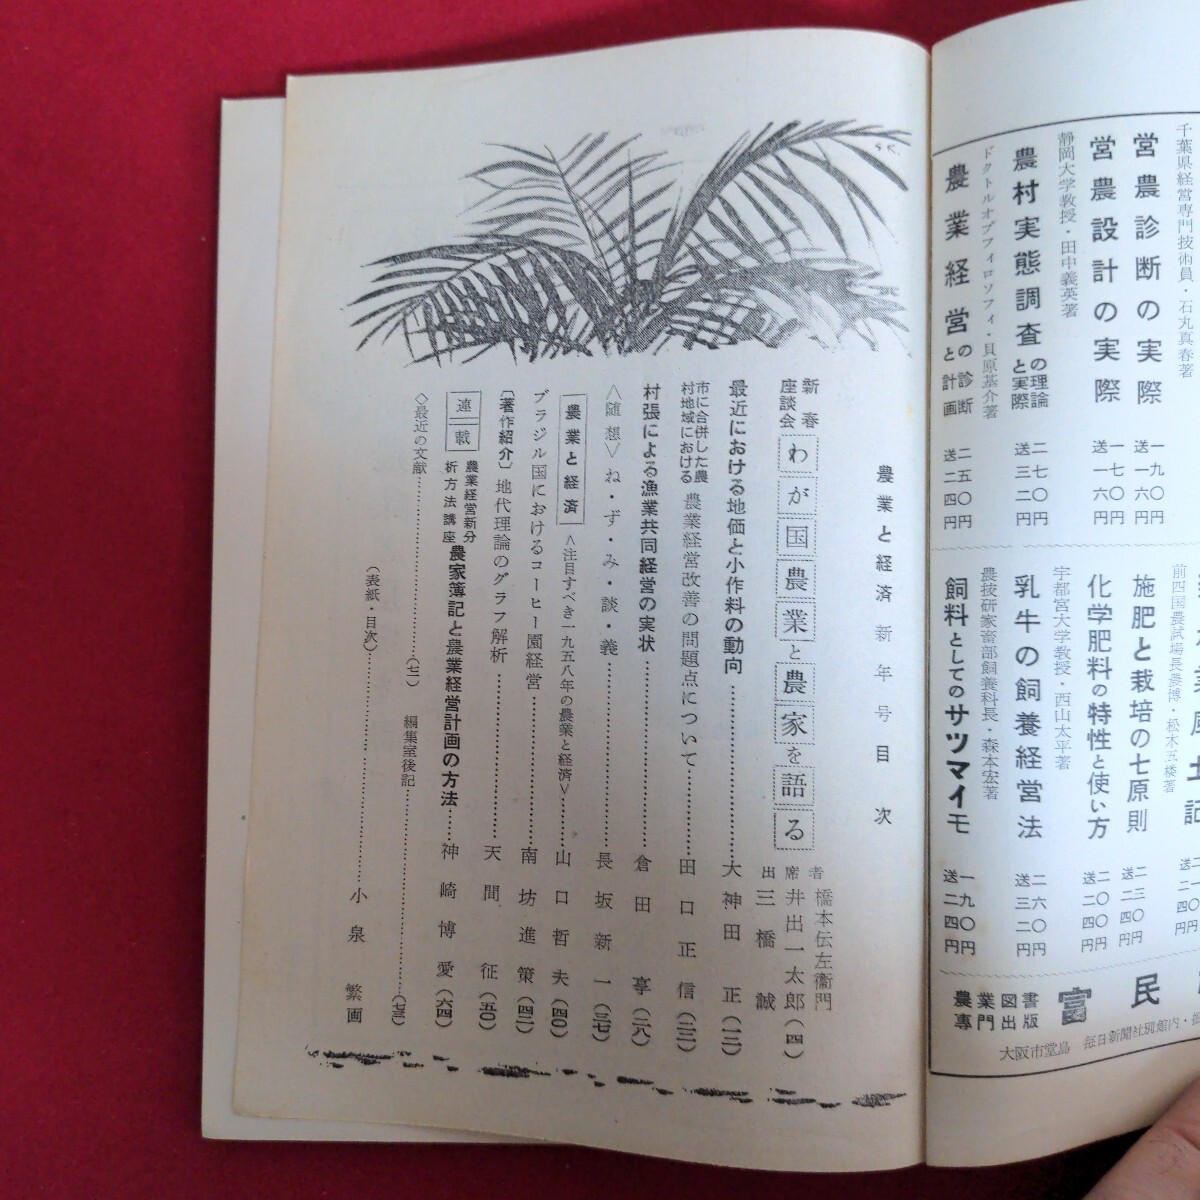 千葉県経営専門技術員・石丸真春著
営農診断の実際 一九〇円 送一六円
営農設計の実際 一七〇円 送一六円
静岡大学教授・田中義英著
農村実態調査の理論と実際 二七〇円 送三二円
ドクトルオブフィロソフィ・貝原基介著
農業経営の診断と計画 二五〇円 送二四円
前四国農試場長農博・松木五楼著
施肥と栽培の七原則
化学肥料の特性と使い方
宇都宮大学教授・西山太平著
乳牛の飼養経営法 二六〇円 送三二円
農技研家畜部飼養科長・森本宏著
飼料としてのサツマイモ 一九〇円 送二四円
農業図書
専門出版
富民
大阪市堂島 毎日新聞社別館内・振
農業と経済新年号目次
新春座談会 わが国農業と農家を語る
出席者 橋本伝左衛門
井出一太郎(四)
三橋誠
最近における地価と小作料の動向……大神田正(一三)
市に合併した農村地域における 農業経営改善の問題点について……田口正信(二三)
村張による漁業共同経営の実状……倉田亨(二八)
<随想> ね・ず・み・談・義……長坂新一(三七)
農業と経済 <注目すべき一九五八年の農業と経済>……山口哲夫(四〇)
ブラジル国におけるコーヒー園経営……南坊進策(四二)
〔著作紹介〕地代理論のグラフ解析……天間征(五〇)
連載 農業経営新分析方法講座 農家簿記と農業経営計画の方法……神崎博愛(六四)
◇最近の文献……(七一) 編集室後記……(七三)
(表紙・目次)……小泉繁画